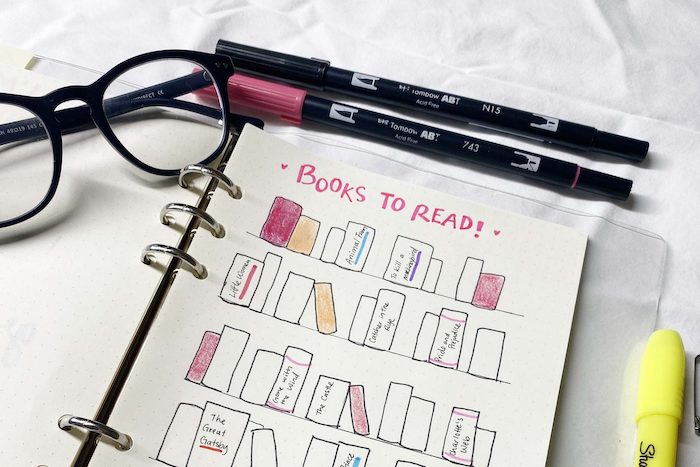 Tombow ABT
Acid Free
N15
Tombow ABT
Acid Free
743
BOOKS TO READ!
Animal Farm
To kill a
mockingbird
Little Women
Catcher in the
Rye
Pride and Prejudice
Gone with
the Wind
The Castle
The
Great
Gatsby
Charlotte's
Web